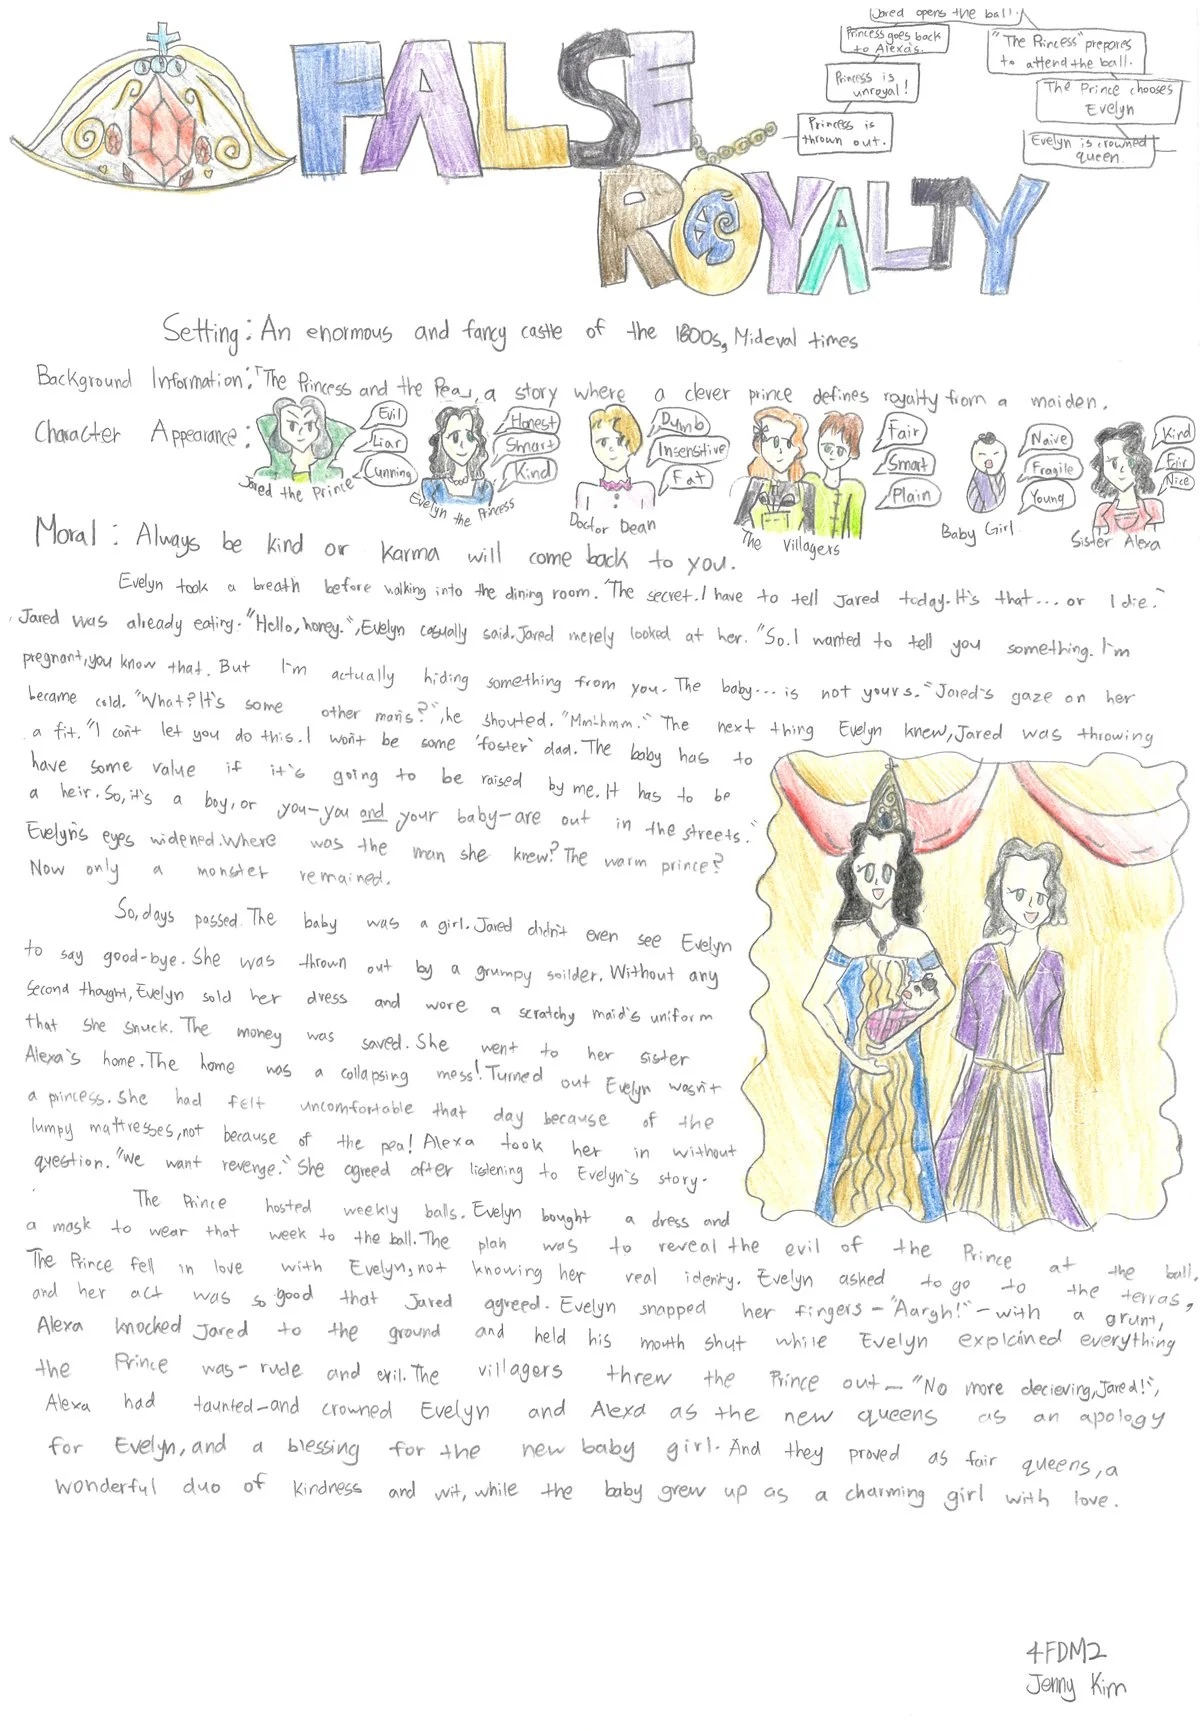 FALSE
ROYALTY
Jared opens the ball.
Princess goes back
to Alexa's.
"The Princess" prepares
to attend the ball.
Princess is
unroyal!
The Prince chooses
Evelyn
Princess is
thrown out.
Evelyn is crowned
queen.
Setting: An enormous and fancy castle of the 1800s, Mideval times
Background Information: "The Princess and the Pea", a story where a clever prince defines royalty from a maiden.
Character Appearance:
Evil
Liar
Cunning
Jared the Prince
Honest
Smart
Kind
Evelyn the Princess
Dumb
Insensitive
Fat
Doctor Dean
Fair
Smart
Plain
The Villagers
Naive
Fragile
Young
Baby Girl
Kind
Fair
Nice
Sister Alexa
Moral: Always be kind or karma will come back to you.
Evelyn took a breath before walking into the dining room. "The secret. I have to tell Jared today. It's that... or I die."
Jared was already eating. "Hello, honey.", Evelyn casually said. Jared merely looked at her. "So. I wanted to tell you something. I'm
pregnant, you know that. But I'm actually hiding something from you. The baby... is not yours." Jared's gaze on her
became cold. "What? It's some other man's?", he shouted. "Mm-hmm." The next thing Evelyn knew, Jared was throwing
a fit. "I can't let you do this. I won't be some 'foster' dad. The baby has to
have some value if it's going to be raised by me. It has to be
a heir. So, it's a boy, or you-you and your baby-are out in the streets."
Evelyn's eyes widened. Where was the man she knew? The warm prince?
Now only a monster remained.
So, days passed. The baby was a girl. Jared didn't even see Evelyn
to say good-bye. She was thrown out by a grumpy soilder. Without any
second thought, Evelyn sold her dress and wore a scratchy maid's uniform
that she snuck. The money was saved. She went to her sister
Alexa's home. The home was a collapsing mess! Turned out Evelyn wasn't
a princess. She had felt uncomfortable that day because of the
lumpy mattresses, not because of the pea! Alexa took her in without
question. "We want revenge." She agreed after listening to Evelyn's story.
The Prince hosted weekly balls. Evelyn bought a dress and
a mask to wear that week to the ball. The plan was to reveal the evil of the Prince at the ball.
The Prince fell in love with Evelyn, not knowing her real identity. Evelyn asked to go to the terras,
and her act was so good that Jared agreed. Evelyn snapped her fingers - "Aargh!" - with a grunt,
Alexa knocked Jared to the ground and held his mouth shut while Evelyn explained everything
the Prince was - rude and evil. The villagers threw the Prince out - "No more decieving, Jared!",
Alexa had taunted - and crowned Evelyn and Alexa as the new queens as an apology
for Evelyn, and a blessing for the new baby girl. And they proved as fair queens, a
wonderful duo of kindness and wit, while the baby grew up as a charming girl with love.
4FDM2
Jenny Kim